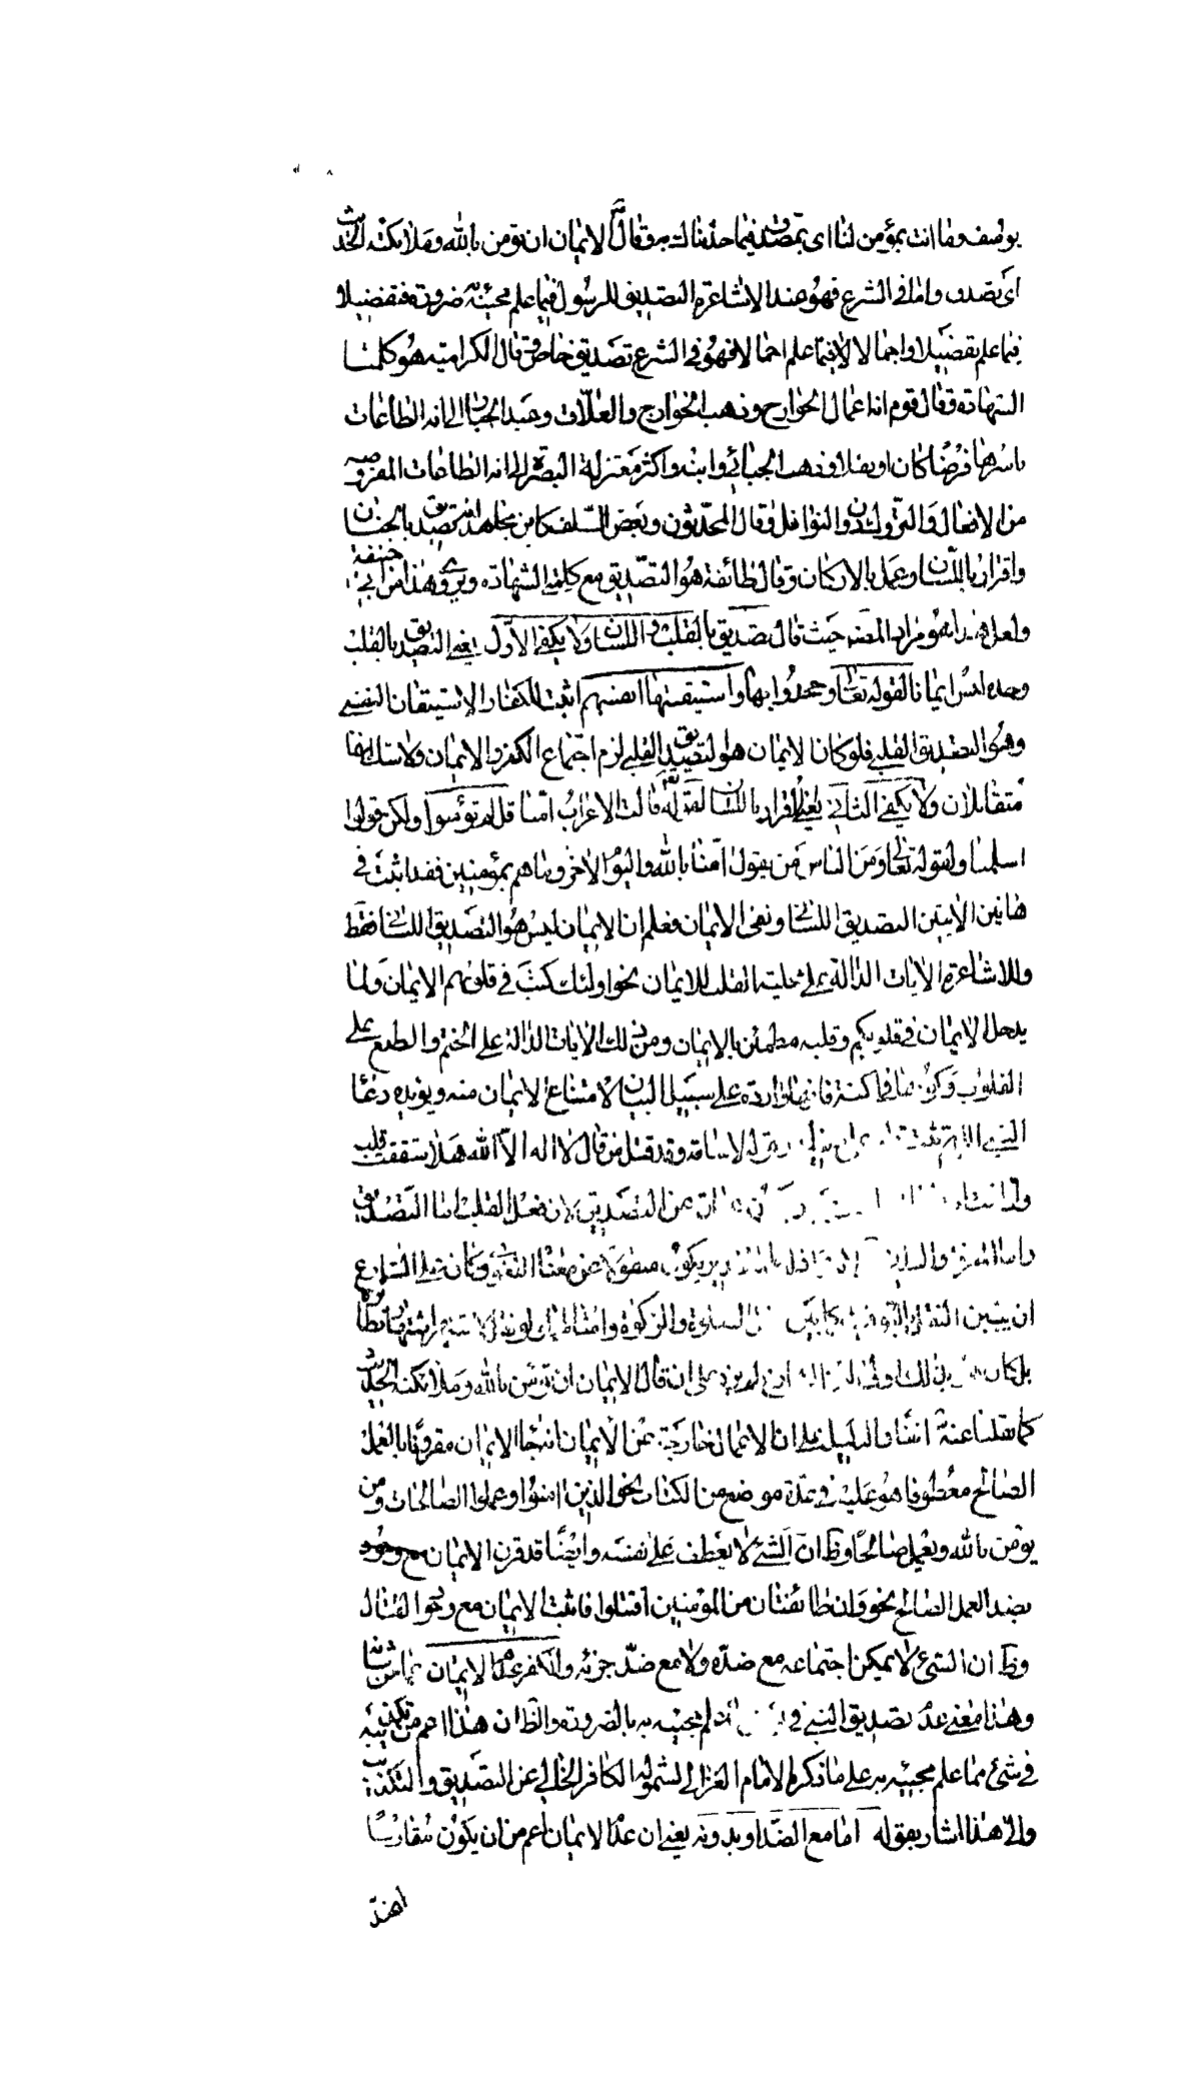 يوسف وما انت بمؤمن لنا اى بمصدق فيما حدثناك به وقال الايمان ان تومن بالله وملائكته الحديث
اى تصدق واما في الشرع فهو عند الاشاعرة التصديق للرسول فيما علم مجيئه به ضرورة فتفصيلا
فيما علم تفصيلا واجمالا فيما علم اجمالا فهو في الشرع تصديق خاص وقال الكرامية هو كلمتا
الشهادة وقال قوم انه اعمال الجوارح وذهب الخوارج والعلاف وعبد الجبار الى انه الطاعات
باسرها فرضا كان او نفلا وذهب الجبائي وابنه واكثر معتزلة البصرة الى انه الطاعات المفروضة
من الافعال والتروك دون النوافل وقال المحدثون وبعض السلف كابن مجاهد انه تصديق بالجنان
واقرار باللسان وعمل بالاركان وقال طائفة هو التصديق مع كلمتي الشهادة ويروى هذا عن ابي حنيفة
ولعل هذا هو مراد المص حيث قال تصديق بالقلب واللسان ولا يكفي الاول يعني التصديق بالقلب
وحده ليس ايمانا لقوله تعالى وجحدوا بها واستيقنتها انفسهم اثبت للكفار الاستيقان النفسي
وهو التصديق القلبي فلو كان الايمان هو التصديق القلبي لزم اجتماع الكفر والايمان ولا شك انهما
متقابلان ولا يكفي الثاني يعني الاقرار باللسان لقوله تعالى قالت الاعراب امنا قل لم تؤمنوا ولكن قولوا
اسلمنا ولقوله تعالى ومن الناس من يقول امنا بالله واليوم الاخر وما هم بمؤمنين فقد اثبت في
هاتين الايتين التصديق اللساني ونفى الايمان فعلم ان الايمان ليس هو التصديق اللساني فقط
وللاشاعرة الايات الدالة على محلية القلب للايمان نحو اولئك كتب في قلوبهم الايمان ولما
يدخل الايمان في قلوبكم وقلبه مطمئن بالايمان ومن ذلك الايات الدالة على الختم والطبع على
القلوب وكونها في اكنة فانها واردة على سبيل البيان لامتناع الايمان منه ويؤيده دعا
النبي اللهم ثبت على دينك وقوله لاسامة وقد قتل من قال لا اله الا الله هلا شققت قلبه
واذا ثبت عن التصديق لان فعل القلب اما التصديق
واما المعرفة والثاني يكون منقولا عن معناه اللغوي وكان على الشارع
ان يبين النقل بالتوقيف كما بين نقل الصلوة والزكوة وامثالهما ولو نقل لاشتهر اشتهار نظائره
بل كان ذلك اولى لم يزد على ان قال الايمان ان تومن بالله وملائكته الحديث
كما نقلنا عنه انفا والدليل على ان الاعمال خارجة عن الايمان انه جا الايمان مقرونا بالعمل
الصالح معطوفا هو عليه في عدة مواضع من الكتاب نحو الذين امنوا وعملوا الصالحات ومن
يؤمن بالله ويعمل صالحا وظ ان الشئ لا يعطف على نفسه وايضا قد قرن الايمان
بضد العمل الصالح نحو وان طائفتان من المؤمنين اقتتلوا فاثبت الايمان مع وجود القتال
وظ ان الشئ لا يمكن اجتماعه مع ضده ولا مع ضد جزئه والكفر عدم الايمان عما من شانه
وهذا معنى عدم تصديق النبي في بعض ما علم مجيئه به بالضرورة والظ ان هذا اعم من تكذيبه
في شئ مما علم مجيئه به على ما ذكره الامام الغزالي لشموله الكافر الخالي عن التصديق والتكذيب
والى هذا اشار بقوله اما مع الضد او بدونه يعني ان عدم الايمان اعم من ان يكون مقارنا
لضد